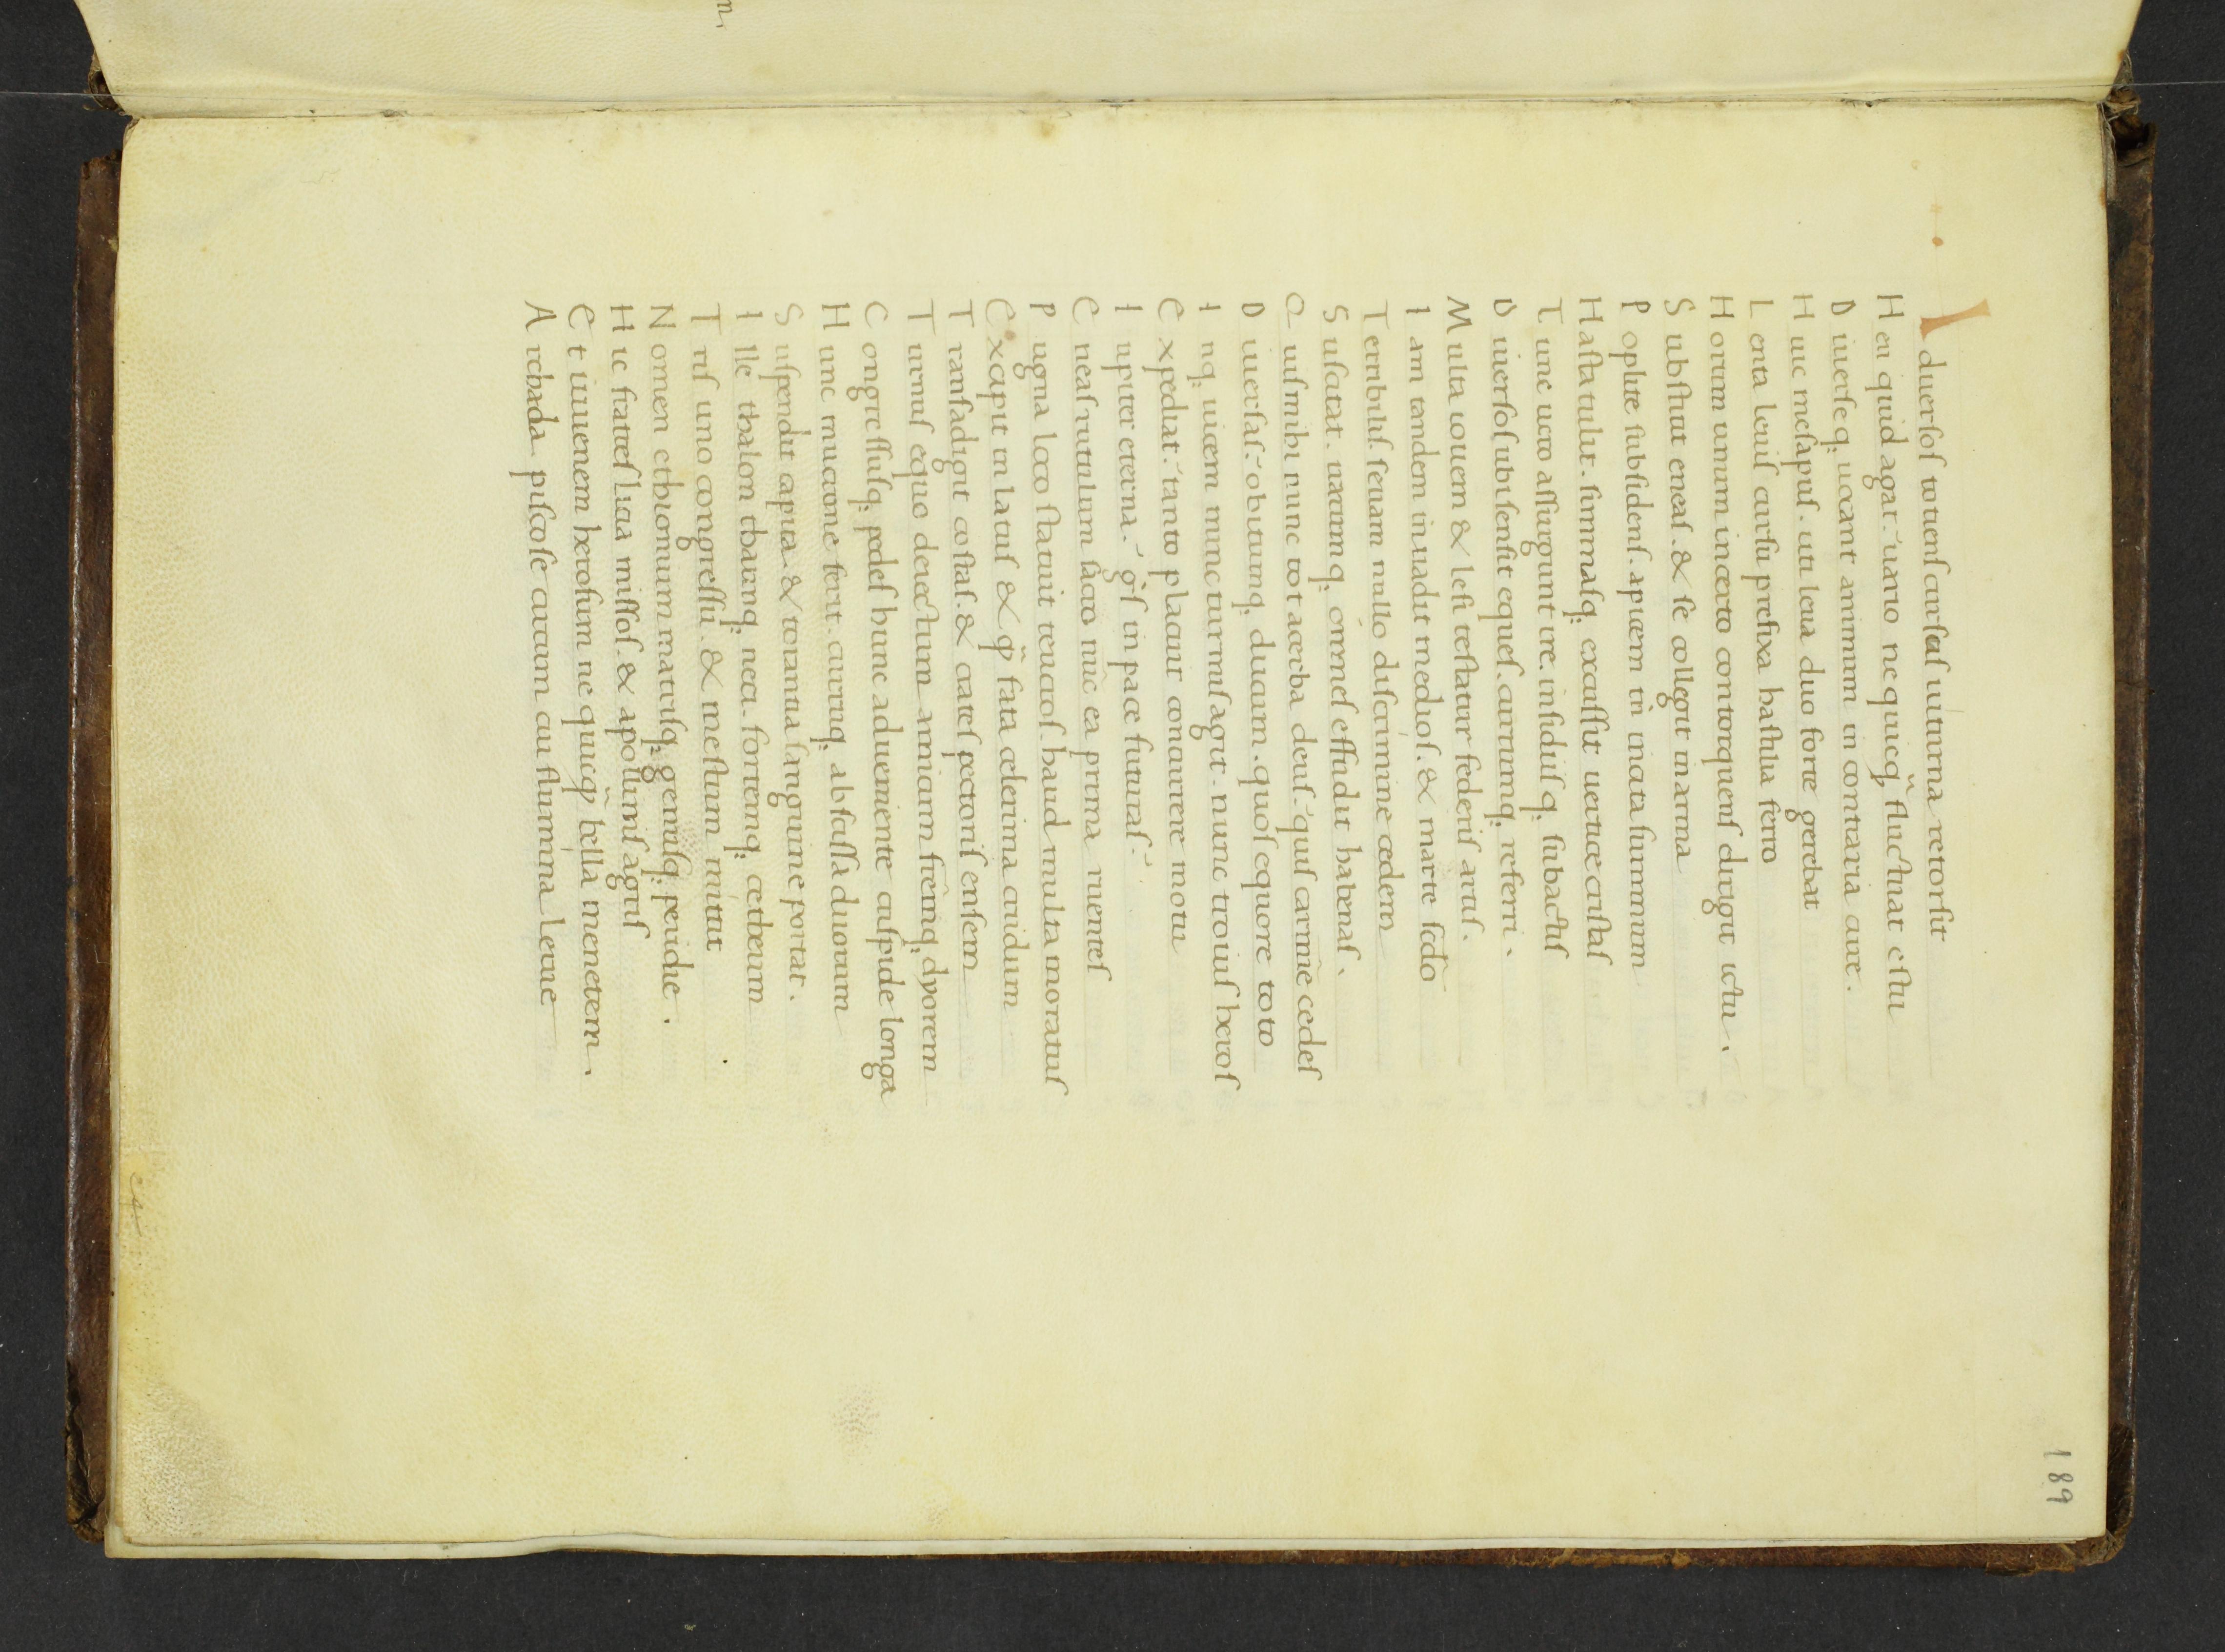 189
Aduersos totiens currus iuturna retorsit
Heu quid agat. uario nequicq̃ fluctuat estu
Diuerseq; uocant animum in contraria cure.
Huic mesapus. uti leua duo forte gerebat
Lenta leuis cursu prefixa hastilia ferro
Horum unum incerto contorquens dirigit ictu.
Substitit eneas. & se collegit in arma
Poplite subsidens. apicem tñ incita summum
Hasta tulit. summasq; excussit uertice cristas
Tunc uero assurgunt ire. insidiisq; subactus
Diuersos ubi sensit equos. currumq; referri.
Multa iouem & lesi testatur federis aras.
Iam tandem inuadit medios. & marte scđo
Terribilis. seuam nullo discrimine cedem
Suscitat. irarumq; omnes effudit habenas.
Quis mihi nunc tot acerba deus. quis carmĩe cedes
Diuersas. obitumq; ducum. quos equore toto
Inq; uicem nunc turnus agit. nunc troius heros
Expediat. tanto placuit concurrere motu
Iupiter eterna. gẽs in pace futuras.
Eneas rutulum sucro nũc ea prima ruentes
Pugna loco statuit teucros. haud multa moratus
Excipit in latus & q̃ fata celerima crudum
Transadigit costas. & crates pectoris ensem
Turnus equo deiectum amicum fr̃emq; dyorem
Congressusq; pedes hunc aduenientẽ cuspide longa
Hunc mucrone ferit. curruq; abscissa duorum
Suspendit capita. & rorantia sanguine portat.
Ille thalon thanimq; neci. fortemq; cethegum
Tris uno congressu. & mestum mittit
Nomen ethionium matrisq; genusq; peridie.
Hic fratres licia missos. & apollinis agris
Et iuuenem herosum nequicq̃ bella menetem.
Archada piscose circum cui flumina lerne